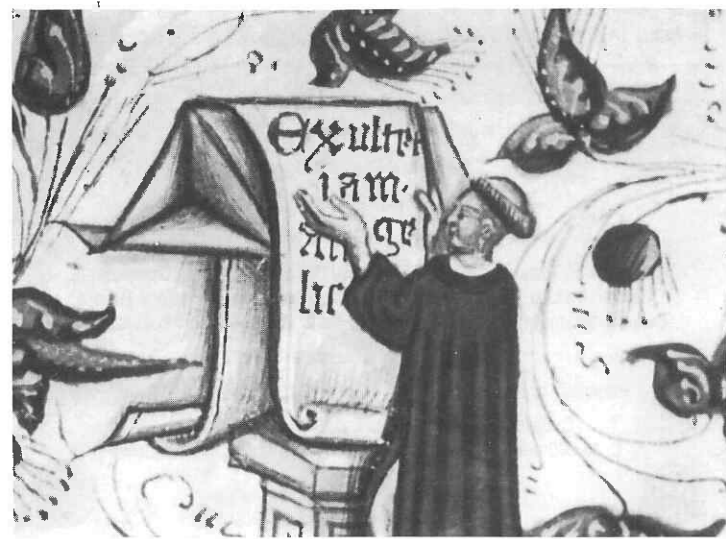 Exultet
iam·
an ge
lic